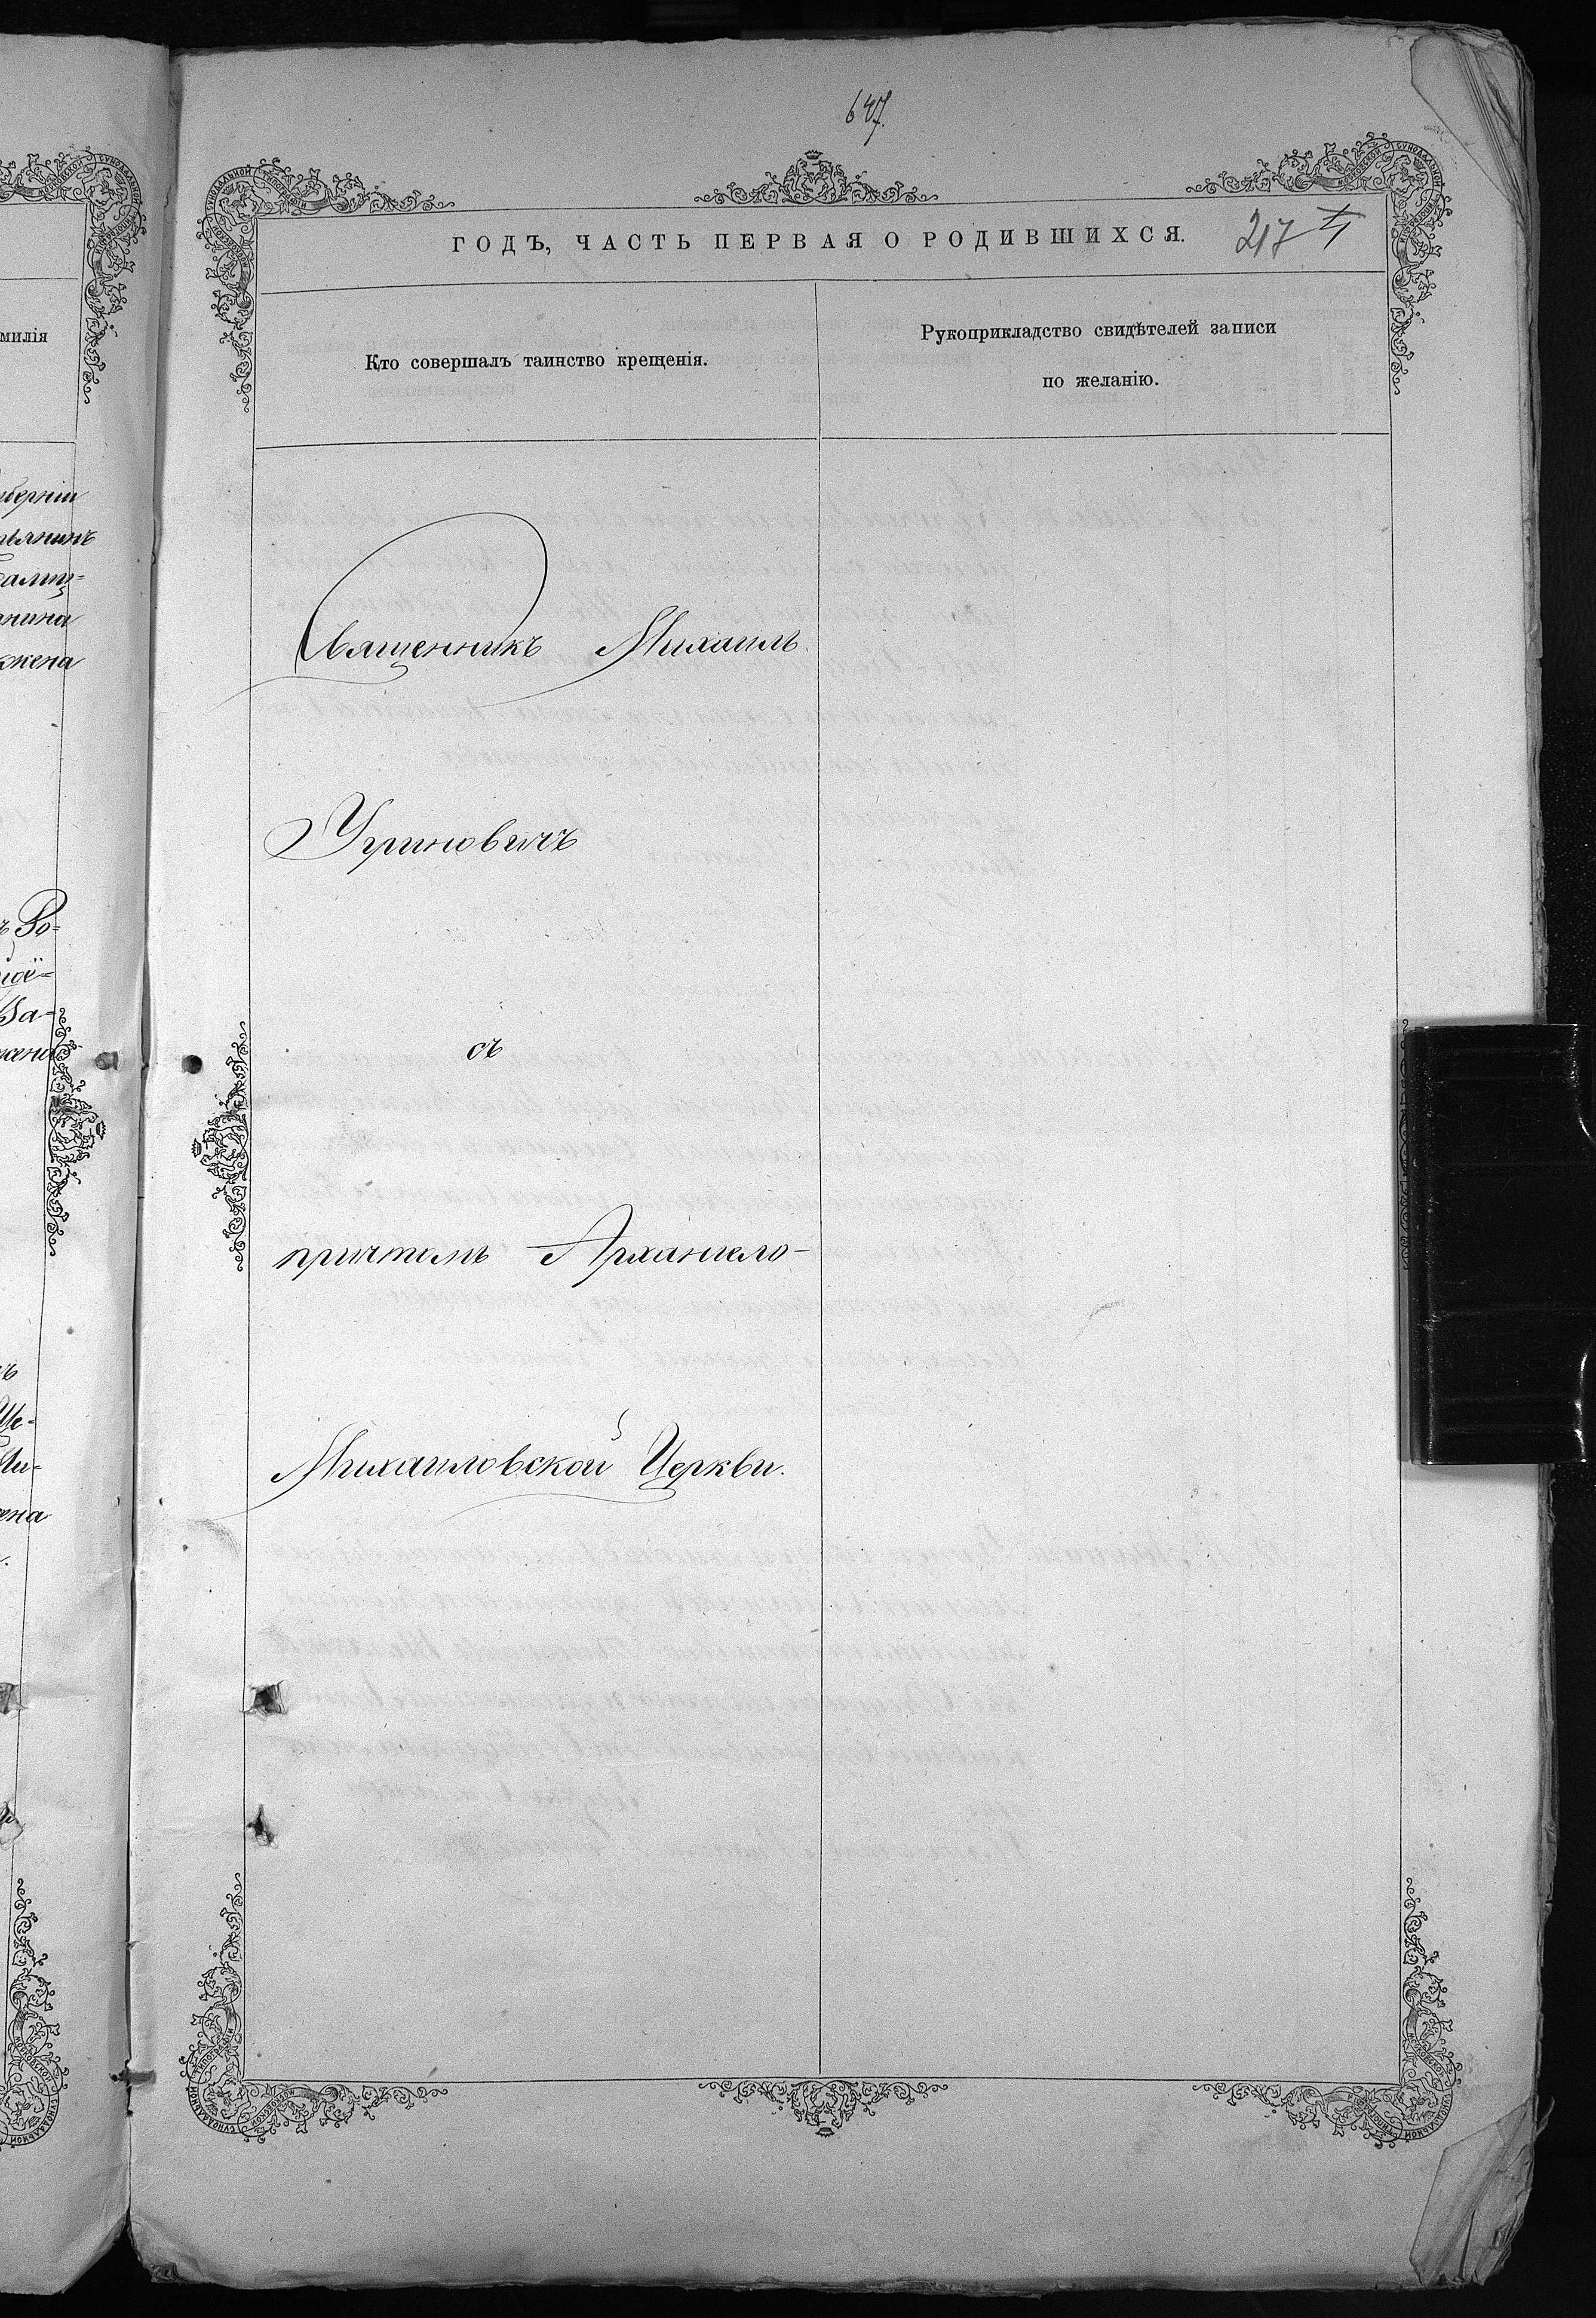 647.
ГОДЪ, ЧАСТЬ ПЕРВАЯ О РОДИВШИХСЯ. 217
Кто совершалъ таинство крещенія.
Рукоприкладство свидѣтелей записи
по желанію.
Священникъ Михаилъ
Угриновичъ
съ
причтомъ Архангело-
Михаиловской Церкви.
милія
жена